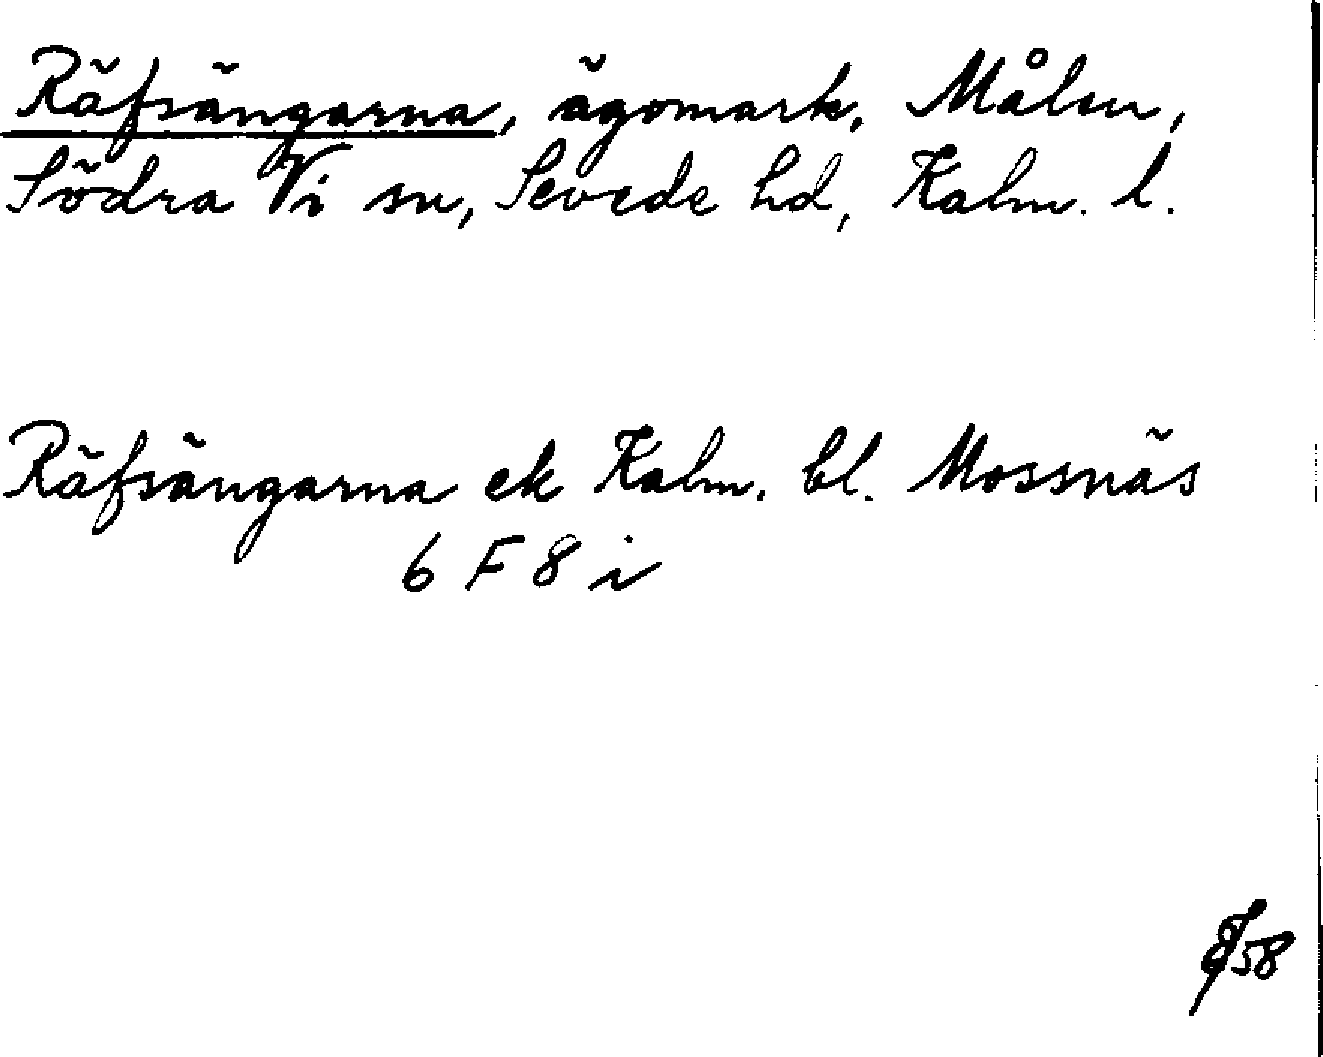 Räfsängarna, ägomark, Målen,
Södra Vi sn, Sevede hd, Kalm. l.
Räfsängarna ek Kalm. bl. Mossnäs
6 F 8 i
58